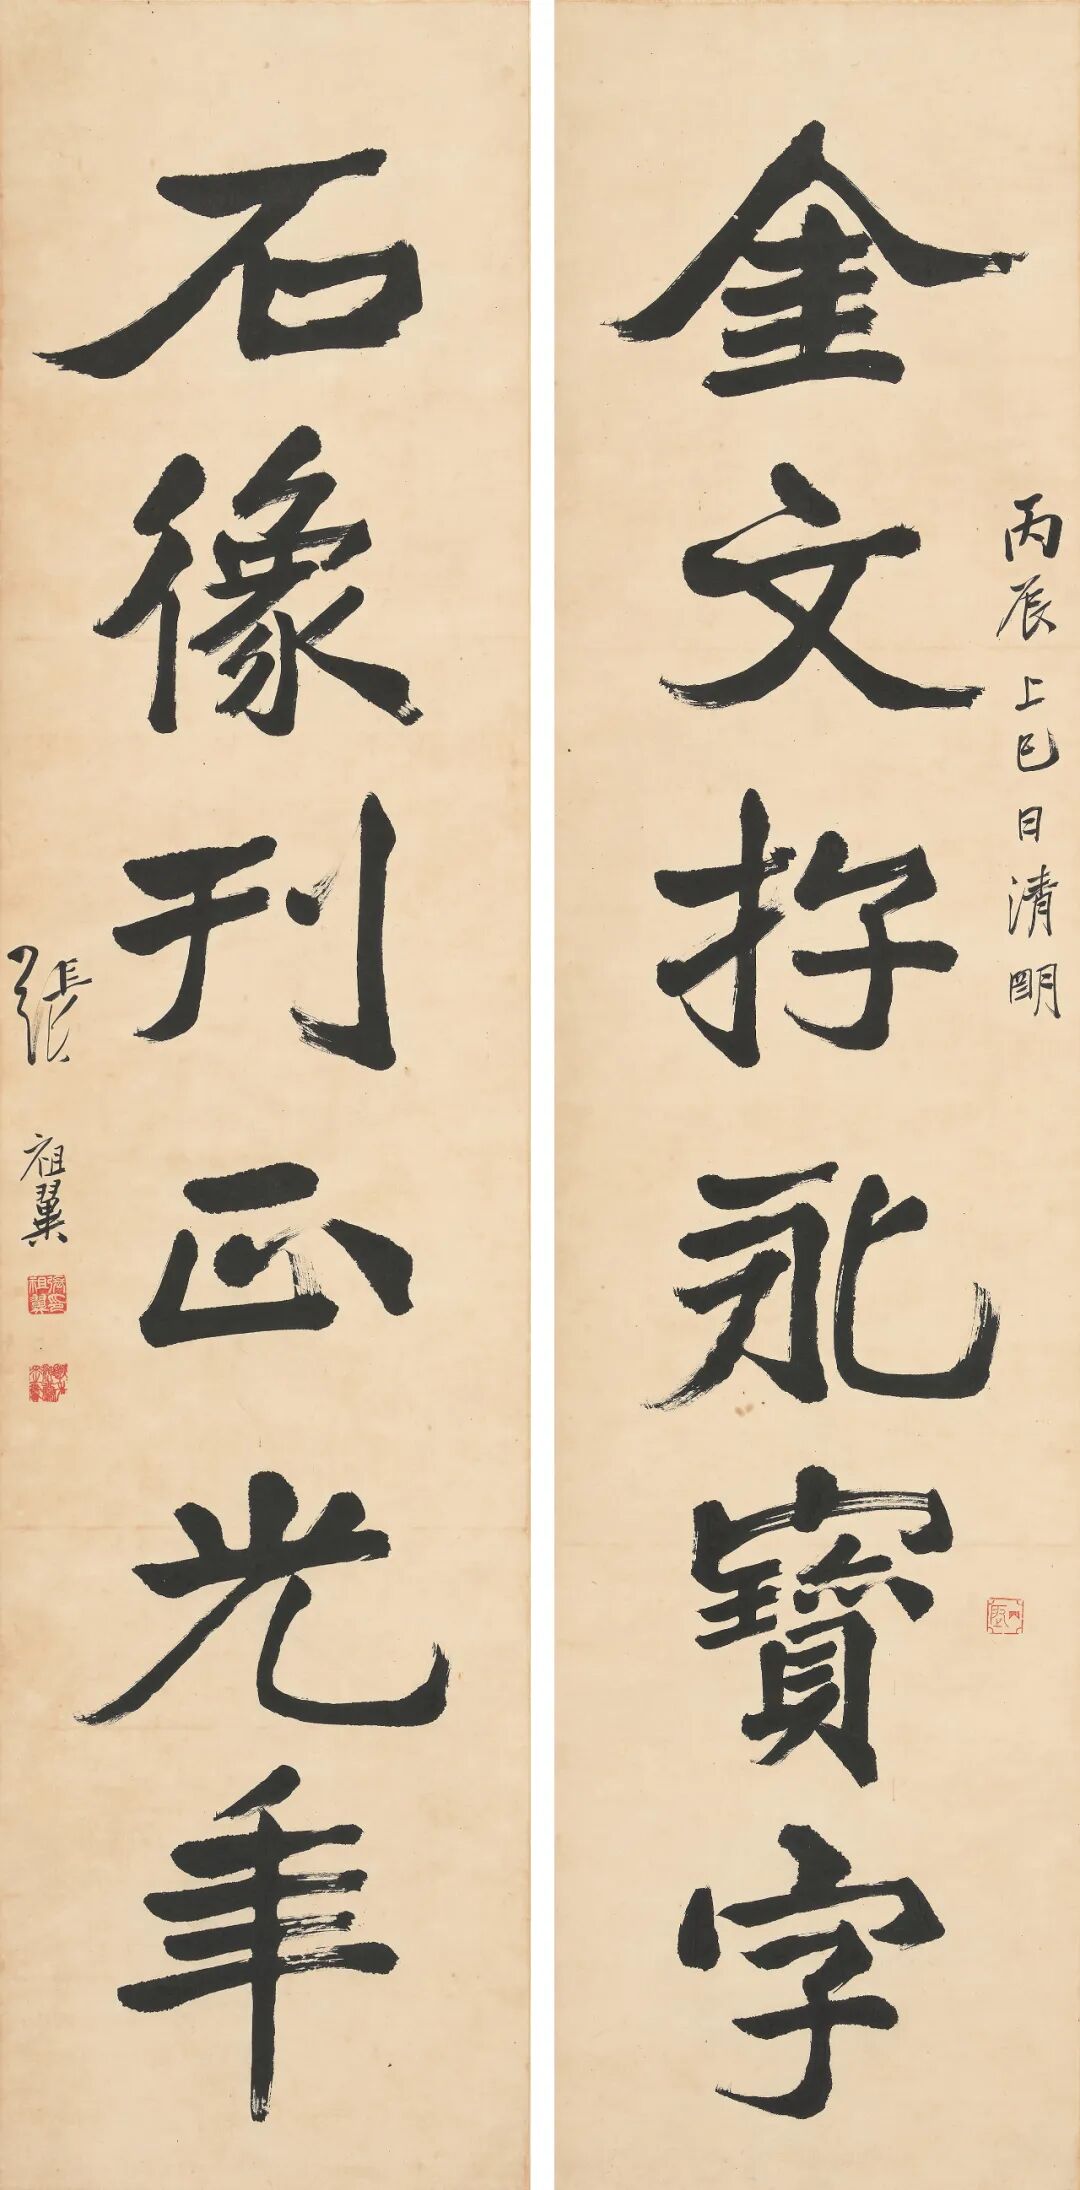 丙辰上巳日清明
金文抒永寶字
石像刊正光年
張祖翼
張祖翼印